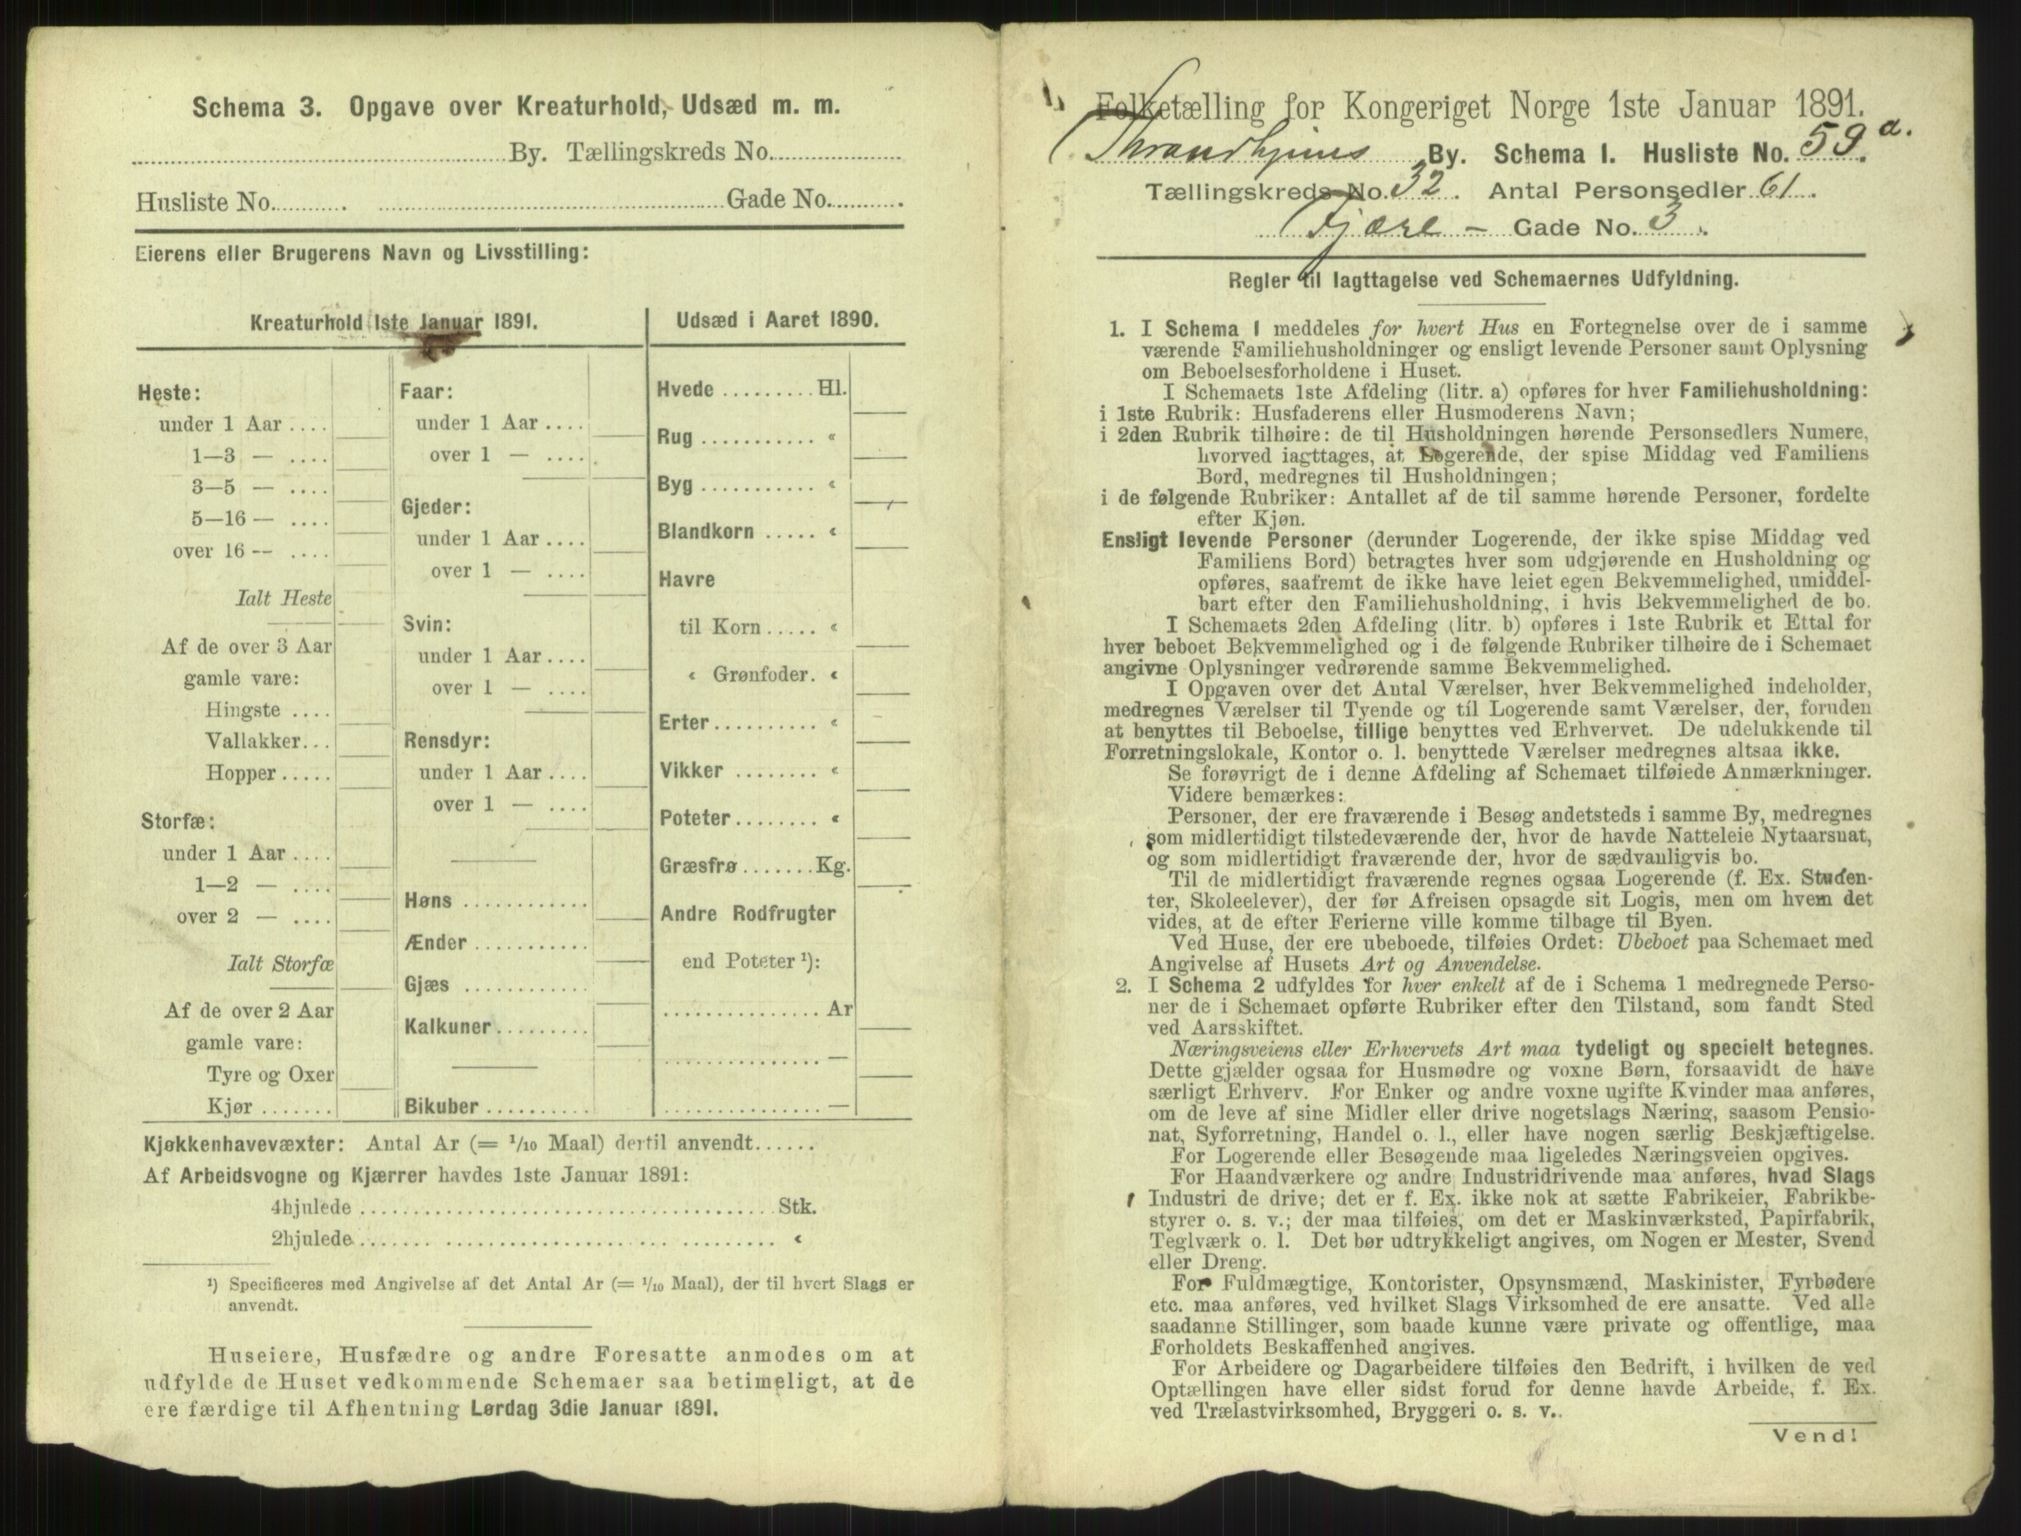 Schema 3. Opgave over Kreaturhold, Udsæd m. m.
By. Tællingskreds No.
Husliste No. Gade No.
Eierens eller Brugerens Navn og Livsstilling:
Kreaturhold 1ste Januar 1891.
Heste:
under 1 Aar ....
1—3 — ....
3—5 — ....
5—16 — ....
over 16 — ....
Ialt Heste
Af de over 3 Aar
gamle vare:
Hingste ....
Vallakker...
Hopper.....
Storfæ:
under 1 Aar ....
1—2 — ....
over 2 — ....
Ialt Storfæ
Af de over 2 Aar
gamle vare:
Tyre og Oxer
Kjør .......
Faar:
under 1 Aar ....
over 1 — ....
Gjeder:
under 1 Aar ....
over 1 — ....
Svin:
under 1 Aar ....
over 1 — ....
Rensdyr:
under 1 Aar ....
over 1 — ....
Høns ............
Ænder ...........
Gjæs ............
Kalkuner.........
Bikuber ..........
Udsæd i Aaret 1890.
Hvede ......... Hl.
Rug ........... «
Byg ........... «
Blandkorn ..... «
Havre
til Korn ..... «
« Grønfoder. «
Erter.......... «
Vikker ........ «
Poteter........ «
Græsfrø ....... Kg.
Andre Rodfrugter
end Poteter ¹):
............... Ar
............... —
............... —
Kjøkkenhavevæxter: Antal Ar (= 1/10 Maal) dertil anvendt......
Af Arbeidsvogne og Kjærrer havdes 1ste Januar 1891:
4hjulede ...................................... Stk.
2hjulede....... ...................... ......... «
¹) Specificeres med Angivelse af det Antal Ar (= 1/10 Maal), der til hvert Slags er
anvendt.
Huseiere, Husfædre og andre Foresatte anmodes om at
udfylde de Huset vedkommende Schemaer saa betimeligt, at de
ere færdige til Afhentning Lørdag 3die Januar 1891.
Folketælling for Kongeriget Norge 1ste Januar 1891.
Throndhjems By. Schema 1. Husliste No. 59 a.
Tællingskreds No. 32. Antal Personsedler 61.
Fjære – Gade No. 3.
Regler til Iagttagelse ved Schemaernes Udfyldning.
1. I Schema 1 meddeles for hvert Hus en Fortegnelse over de i samme
værende Familiehusholdninger og ensligt levende Personer samt Oplysning
om Beboelsesforholdene i Huset.
I Schemaets 1ste Afdeling (litr. a) opføres for hver Familiehusholdning:
i 1ste Rubrik: Husfaderens eller Husmoderens Navn;
i 2den Rubrik tilhøire: de til Husholdningen hørende Personsedlers Numere,
hvorved iagttages, at Logerende, der spise Middag ved Familiens
Bord, medregnes til Husholdningen;
i de følgende Rubriker: Antallet af de til samme hørende Personer, fordelte
efter Kjøn.
Ensligt levende Personer (derunder Logerende, der ikke spise Middag ved
Familiens Bord) betragtes hver som udgjørende en Husholdning og
opføres, saafremt de ikke have leiet egen Bekvemmelighed, umiddel-
bart efter den Familiehusholdning, i hvis Bekvemmelighed de bo.
I Schemaets 2den Afdeling (litr. b) opføres i 1ste Rubrik et Ettal for
hver beboet Bekvemmelighed og i de følgende Rubriker tilhøire de i Schemaet
angivne Oplysninger vedrørende samme Bekvemmelighed.
I Opgaven over det Antal Værelser, hver Bekvemmelighed indeholder,
medregnes Værelser til Tyende og til Logerende samt Værelser, der, foruden
at benyttes til Beboelse, tillige benyttes ved Erhvervet. De udelukkende til
Forretningslokale, Kontor o. l. benyttede Værelser medregnes altsaa ikke.
Se forøvrigt de i denne Afdeling af Schemaet tilføiede Anmærkninger.
Videre bemærkes:
Personer, der ere fraværende i Besøg andetsteds i samme By, medregnes
som midlertidigt tilstedeværende der, hvor de havde Natteleie Nytaarsnat,
og som midlertidigt fraværende der, hvor de sædvanligvis bo.
Til de midlertidigt fraværende regnes ogsaa Logerende (f. Ex. Studen-
ter, Skoleelever), der før Afreisen opsagde sit Logis, men om hvem det
vides, at de efter Ferierne ville komme tilbage til Byen.
Ved Huse, der ere ubeboede, tilføies Ordet: Ubeboet paa Schemaet med
Angivelse af Husets Art og Anvendelse.
2. I Schema 2 udfyldes for hver enkelt af de i Schema 1 medregnede Perso-
ner de i Schemaet opførte Rubriker efter den Tilstand, som fandt Sted
ved Aarsskiftet.
Næringsveiens eller Erhvervets Art maa tydeligt og specielt betegnes.
Dette gjælder ogsaa for Husmødre og voxne Børn, forsaavidt de have
særligt Erhverv. For Enker og andre voxne ugifte Kvinder maa anføres,
om de leve af sine Midler eller drive nogetslags Næring, saasom Pensio-
nat, Syforretning, Handel o. l., eller have nogen særlig Beskjæftigelse.
For Logerende eller Besøgende maa ligeledes Næringsveien opgives.
For Haandværkere og andre Industridrivende maa anføres, hvad Slags
Industri de drive; det er f. Ex. ikke nok at sætte Fabrikeier, Fabrikbe-
styrer o. s. v.; der maa tilføies, om det er Maskinværksted, Papirfabrik,
Teglværk o. l. Det bør udtrykkeligt angives, om Nogen er Mester, Svend
eller Dreng.
For Fuldmægtige, Kontorister, Opsynsmænd, Maskinister, Fyrbødere
etc. maa anføres, ved hvilket Slags Virksomhed de ere ansatte. Ved alle
saadanne Stillinger, som baade kunne være private og offentlige, maa
Forholdets Beskaffenhed angives.
For Arbeidere og Dagarbeidere tilføies den Bedrift, i hvilken de ved
Optællingen have eller sidst forud for denne havde Arbeide, f. Ex.
ved Trælastvirksomhed, Bryggeri o. s. v.
Vend!